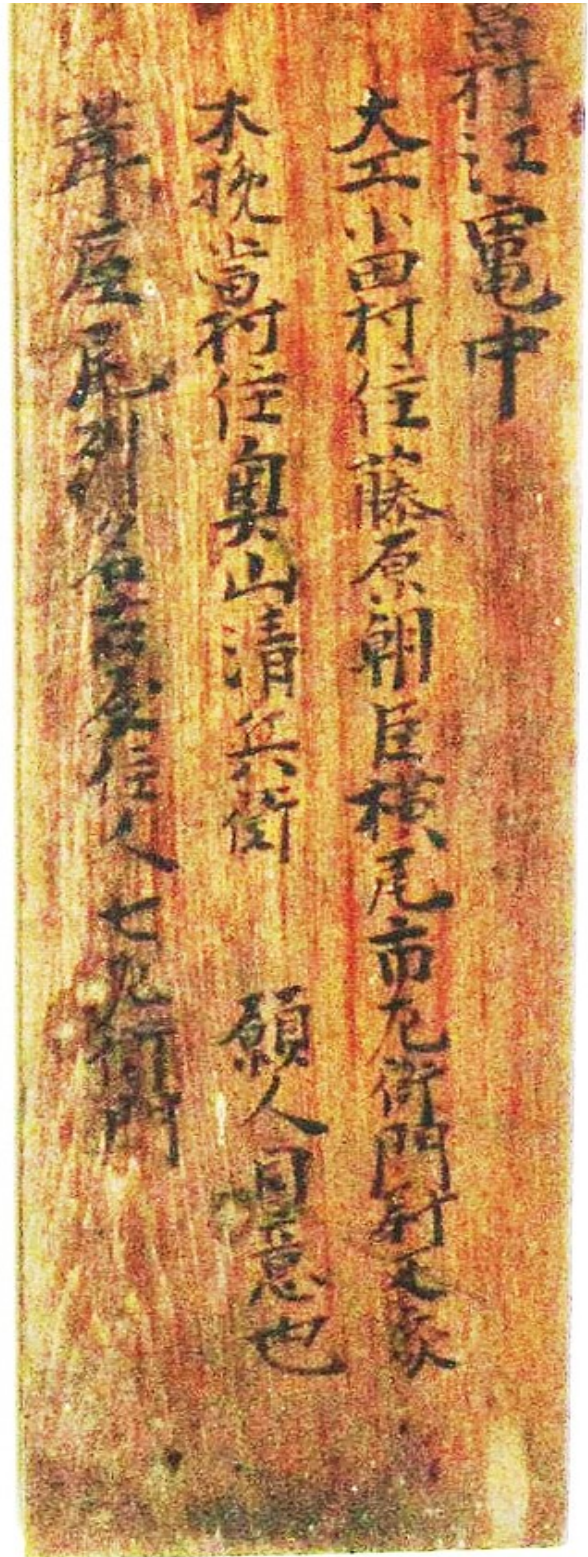 村江竜中
大工小田村住藤原朝臣横尾市左衛門
木挽当村住奥山清兵衛　願人同意也
葺屋尾州名古屋住人七左衛門